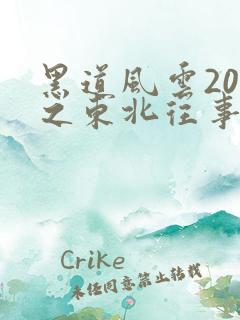 黑道风雲20
之东北往事
Crike
未经同意禁止转载